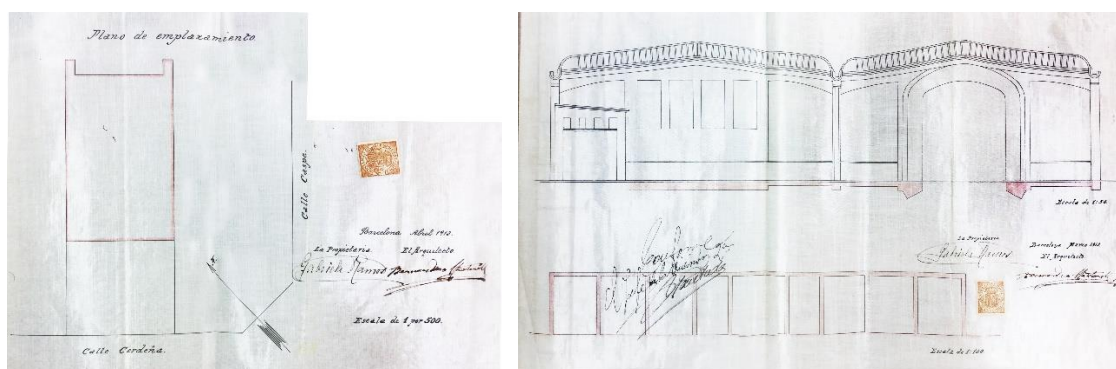 Plano de emplazamiento
Calle Caspe.
Barcelona Abril 1912.
La Propietaria El Arquitecto
Gabriela Ramos
Escala de 1 por 500.
Calle Cerdeña.
Escala de 1:50
La Propietaria
Gabriela Ramos
Barcelona Marzo 1912
El Arquitecto
Escala de 1:100